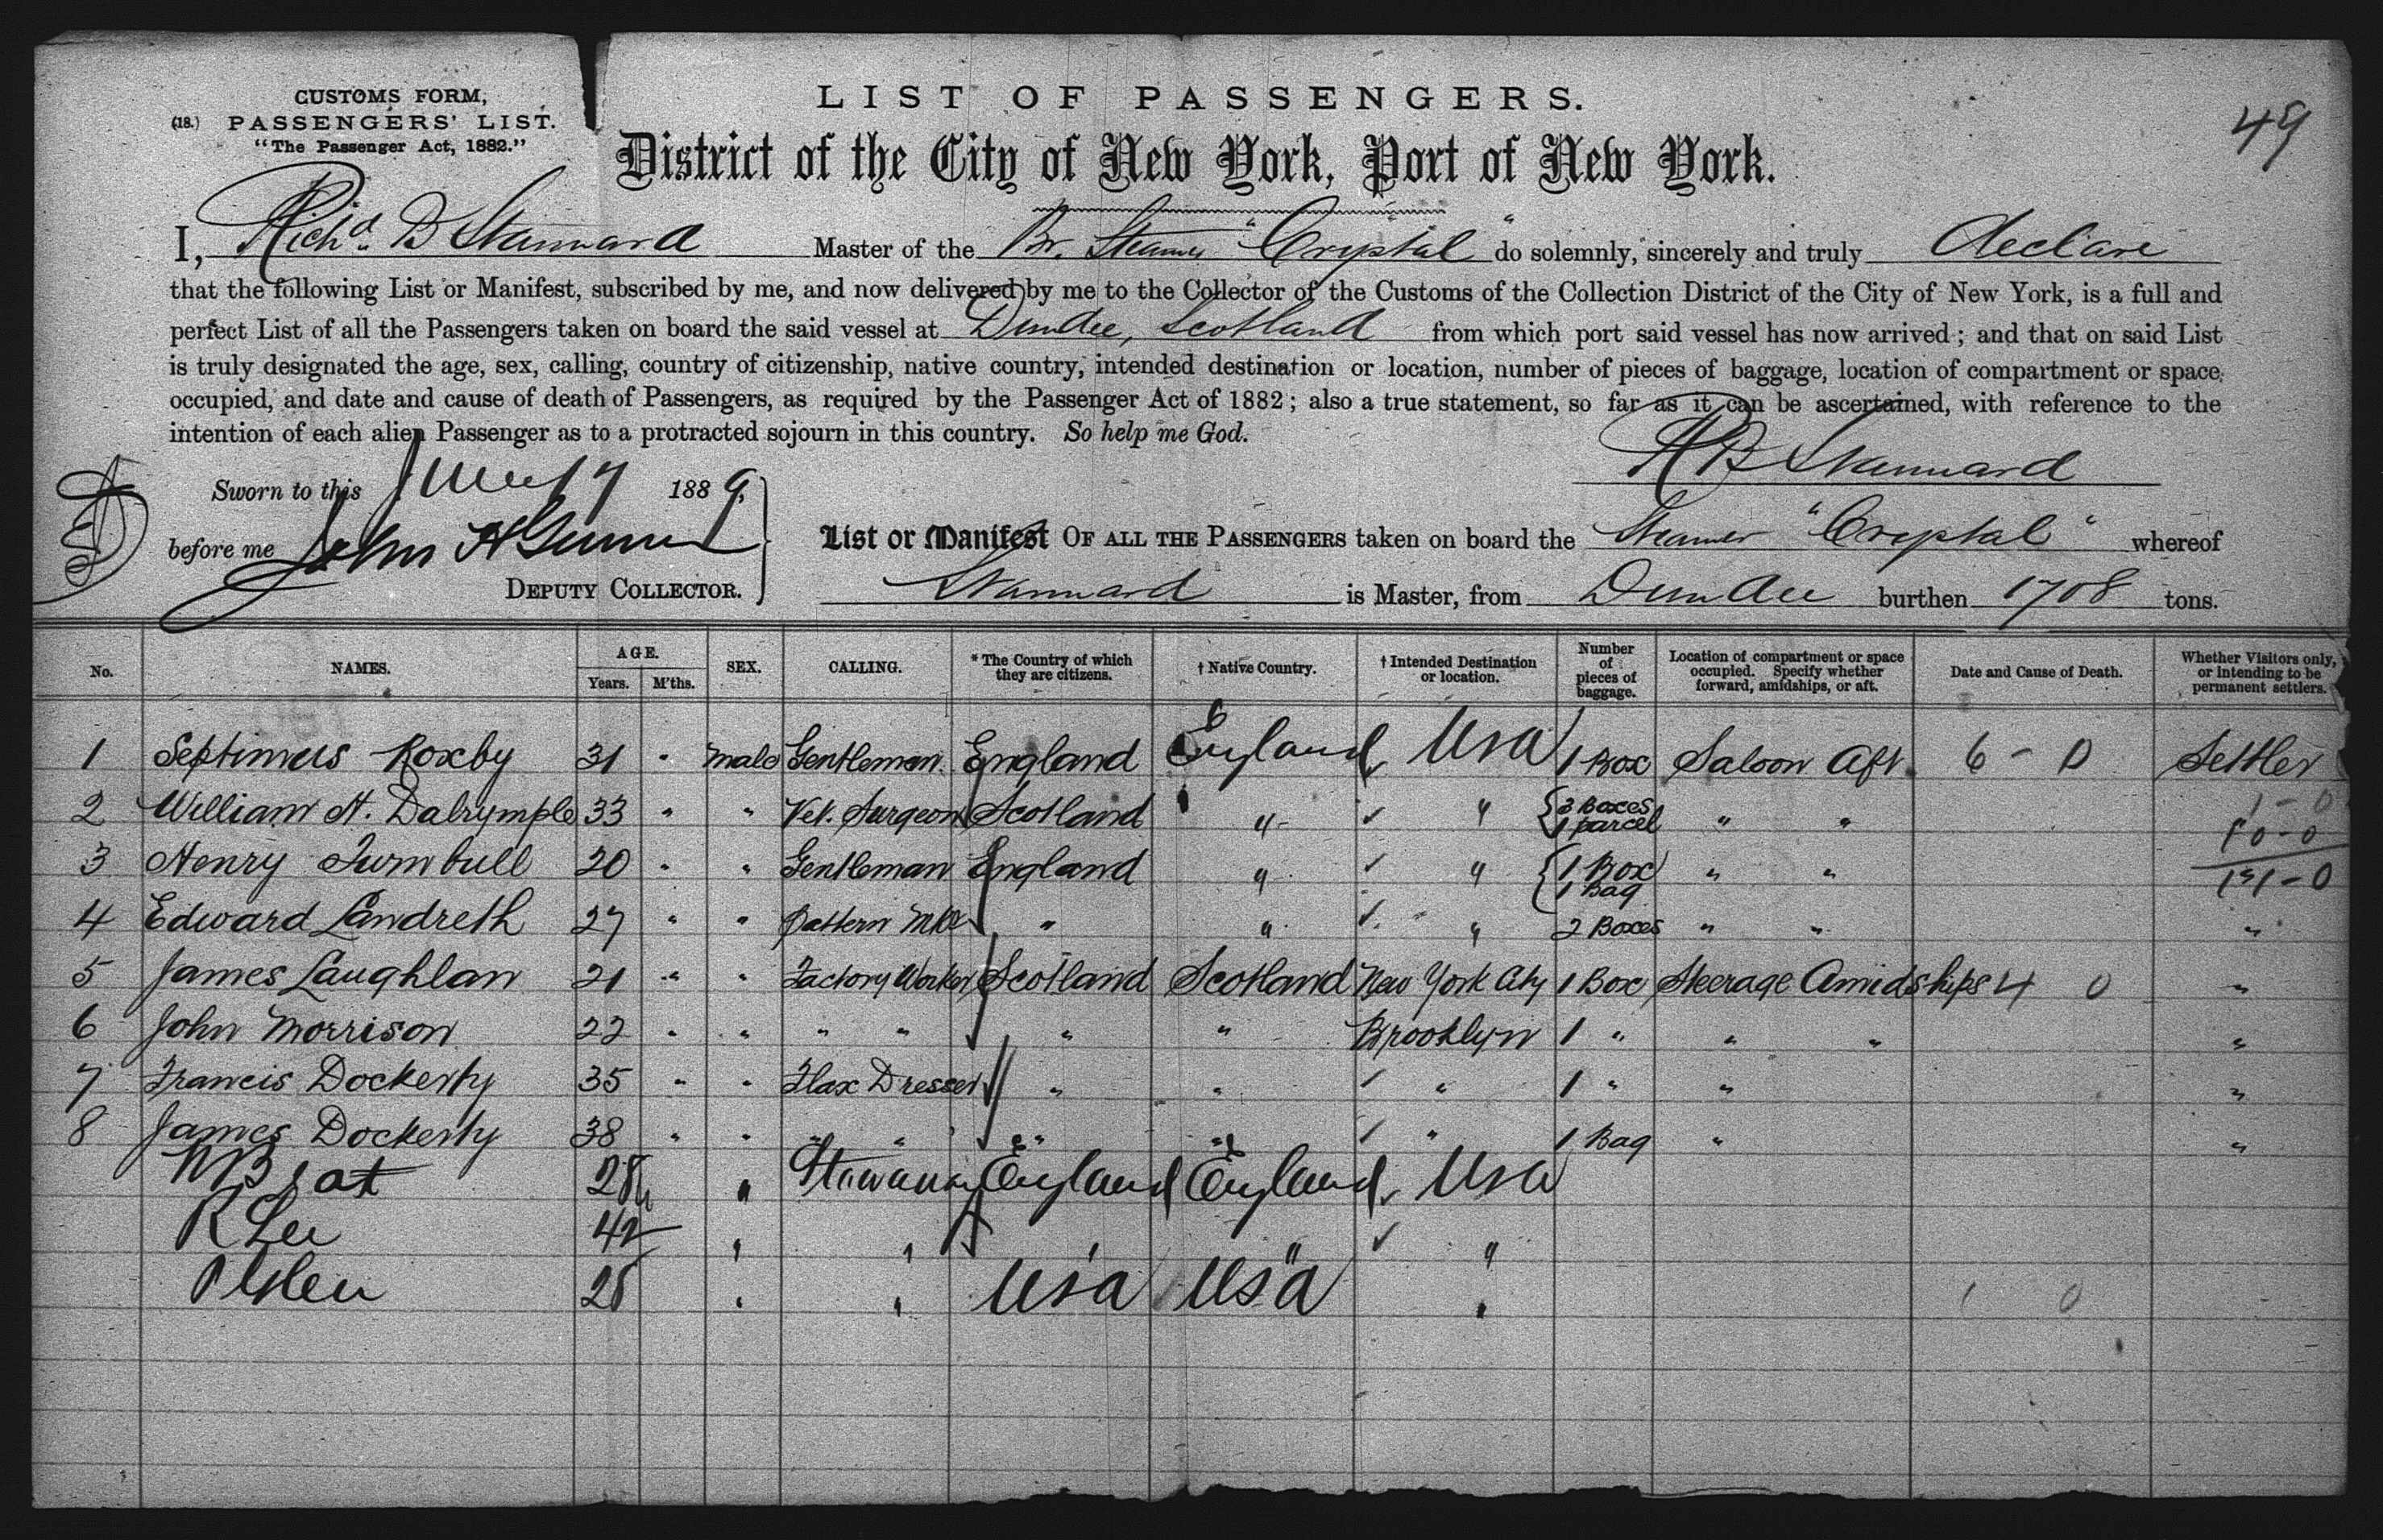 CUSTOMS FORM,
(18.) PASSENGERS' LIST.
"The Passenger Act, 1882."
LIST OF PASSENGERS.
49
District of the City of New York, Port of New York.
I, Richd. B Stannard Master of the Br. Steamer "Crystal" do solemnly, sincerely and truly declare
that the following List or Manifest, subscribed by me, and now delivered by me to the Collector of the Customs of the Collection District of the City of New York, is a full and
perfect List of all the Passengers taken on board the said vessel at Dundee, Scotland from which port said vessel has now arrived; and that on said List
is truly designated the age, sex, calling, country of citizenship, native country, intended destination or location, number of pieces of baggage, location of compartment or space
occupied, and date and cause of death of Passengers, as required by the Passenger Act of 1882; also a true statement, so far as it can be ascertained, with reference to the
intention of each alien Passenger as to a protracted sojourn in this country. So help me God.
R B Stannard
Sworn to this June 17 1889.
before me John H
DEPUTY COLLECTOR.
List or Manifest OF ALL THE PASSENGERS taken on board the Steamer "Crystal" whereof
Stannard is Master, from Dundee burthen 1708 tons.
No. NAMES. AGE. Years. M'ths. SEX. CALLING. * The Country of which they are citizens. † Native Country. † Intended Destination or location. Number of pieces of baggage. Location of compartment or space occupied. Specify whether forward, amidships, or aft. Date and Cause of Death. Whether Visitors only, or intending to be permanent settlers.
1 Septimus Roxby 31 " male Gentleman England England USA 1 Box Saloon Aft. 6 - 0 Settler
2 William H. Dalrymple 33 " " Vet. Surgeon Scotland " " 3 Boxes 1 parcel " " 1 - 0
10 - 0
3 Henry Turnbull 20 " " Gentleman England " " 1 Box 1 Bag " " 11 - 0
4 Edward Landreth 27 " " Pattern Mkr " " " 2 Boxes " " "
5 James Laughlan 21 " " Factory Worker Scotland Scotland New York City 1 Box Steerage Amidships 4 0 "
6 John Morrison 22 " " " " " " Brooklyn 1 " " " "
7 Francis Dockerty 35 " " Flax Dresser " " " 1 " " "
8 James Dockerty 38 " " " " " " " 1 Bag " "
28 " England England USA
R Lee 42 " " " " "
28 " " USA USA " 1 0